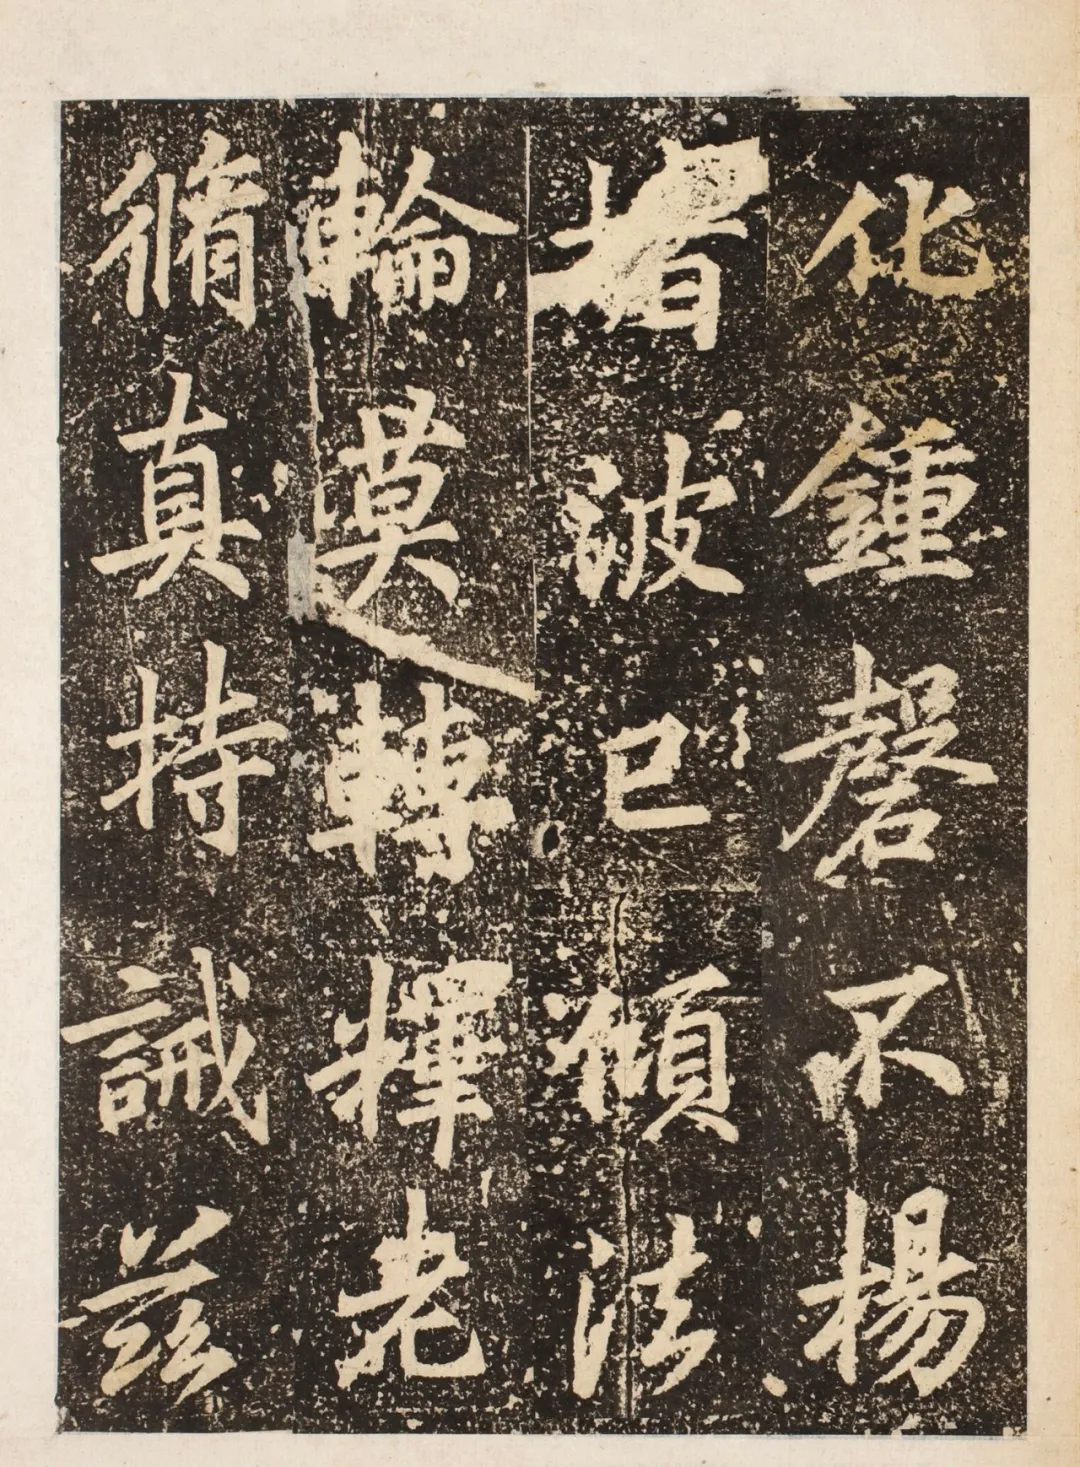 化鍾磬不揚
者波已傾法
輪莫轉擇老
脩真持誡茲